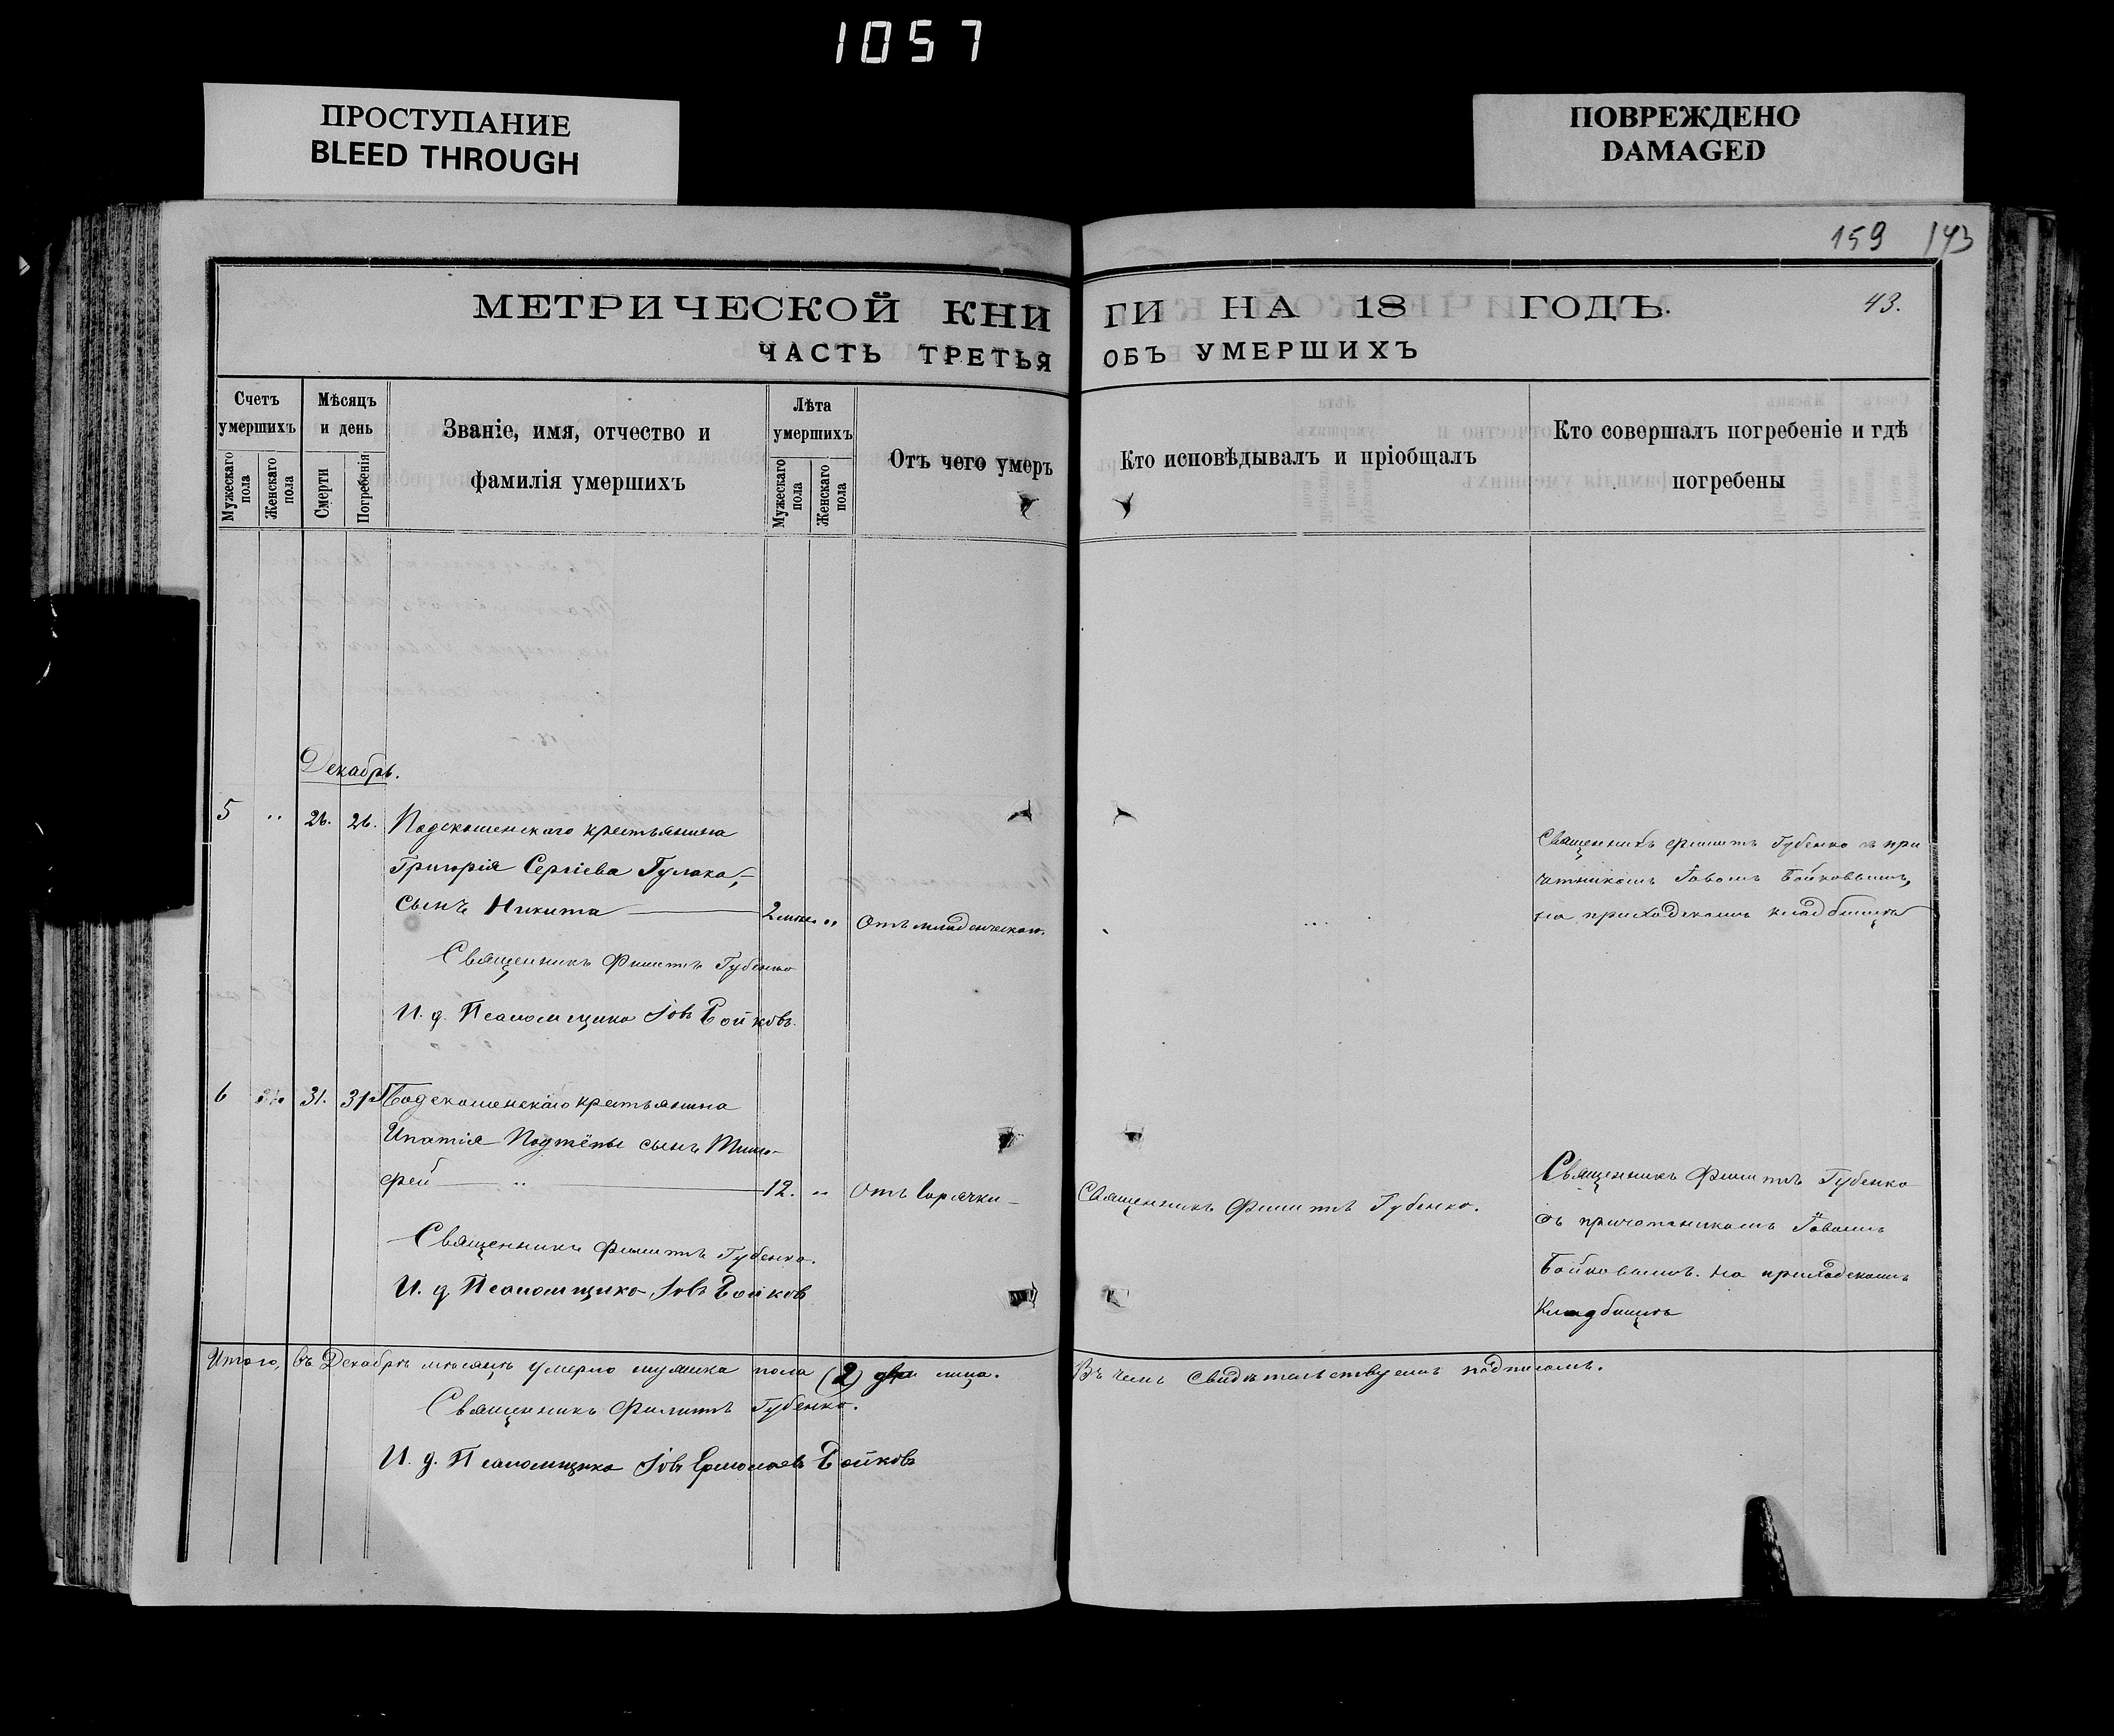 1057
ПРОСТУПАНИЕ
BLEED THROUGH
ПОВРЕЖДЕНО
DAMAGED
159 143
МЕТРИЧЕСКОЙ КНИ
ГИ НА 18 ГОДЪ.
43.
ЧАСТЬ ТРЕТЬЯ
ОБЪ УМЕРШИХЪ
Счетъ умершихъ
Мужескаго пола
Женскаго пола
Мѣсяцъ и день
Смерти
Погребенія
Званіе, имя, отчество и
фамилія умершихъ
Лѣта умершихъ
Мужескаго пола
Женскаго пола
Отъ чего умеръ
Кто исповѣдывалъ и пріобщалъ
Кто совершалъ погребеніе и гдѣ
погребены
Декабрь.
5 " 26. 26. крестьянина
Григорія Сергіева Гулака,
сынъ Никита 2 " Отъ младенческой.
Священникъ Филиппъ Губенко
И. д. Псаломщика Іовъ Бойковъ.
Священникъ Филиппъ Губенко съ при
четникомъ Іовомъ Бойковымъ,
на приходскомъ кладбищѣ
6 31. 31. крестьянина
Ипатія сынъ Тимо-
фей 12. " Отъ горячки
Священникъ Филиппъ Губенко.
И. д. Псаломщика Іовъ Бойков
Священникъ Филиппъ Губенко.
Священникъ Филиппъ Губенко
съ причетникомъ Іовомъ
Бойковымъ. на приходскомъ
Кладбищѣ
Итого, въ Декабрѣ мѣсяцѣ умерло мужска пола (2) два лица.
Въ чемъ свидѣтельствуемъ подписомъ.
Священникъ Филиппъ Губенко.
И. д. Псаломщика Іовъ Ермолаевъ Бойковъ